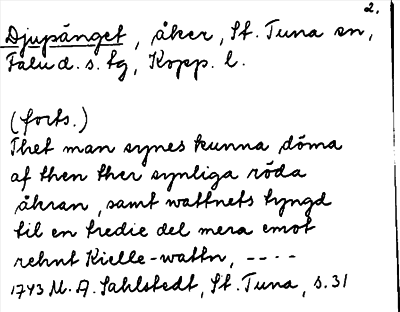 2.
Djupänget, åker, St. Tuna sn,
Falu d. s. tg, Kopp. l.
(forts.)
Thet man synes kunna döma
af then ther synliga röda
åkran, samt wattnets tyngd
til en tredie del mera emot
rehnt Kielle-wattn, ----
1743 M. A. Sahlstedt, St. Tuna, s. 31